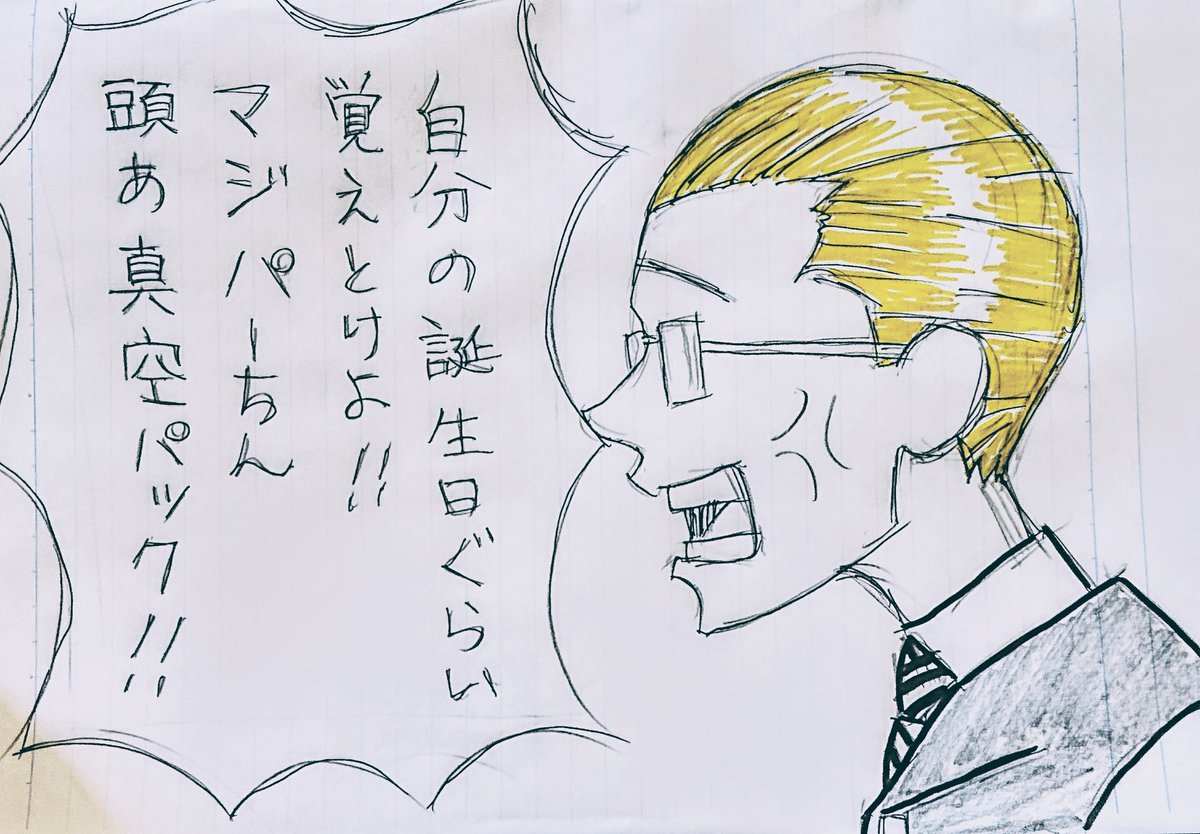 自分の誕生日ぐらい
覚えとけよ!!
マジパーちん
頭あ真空パック!!